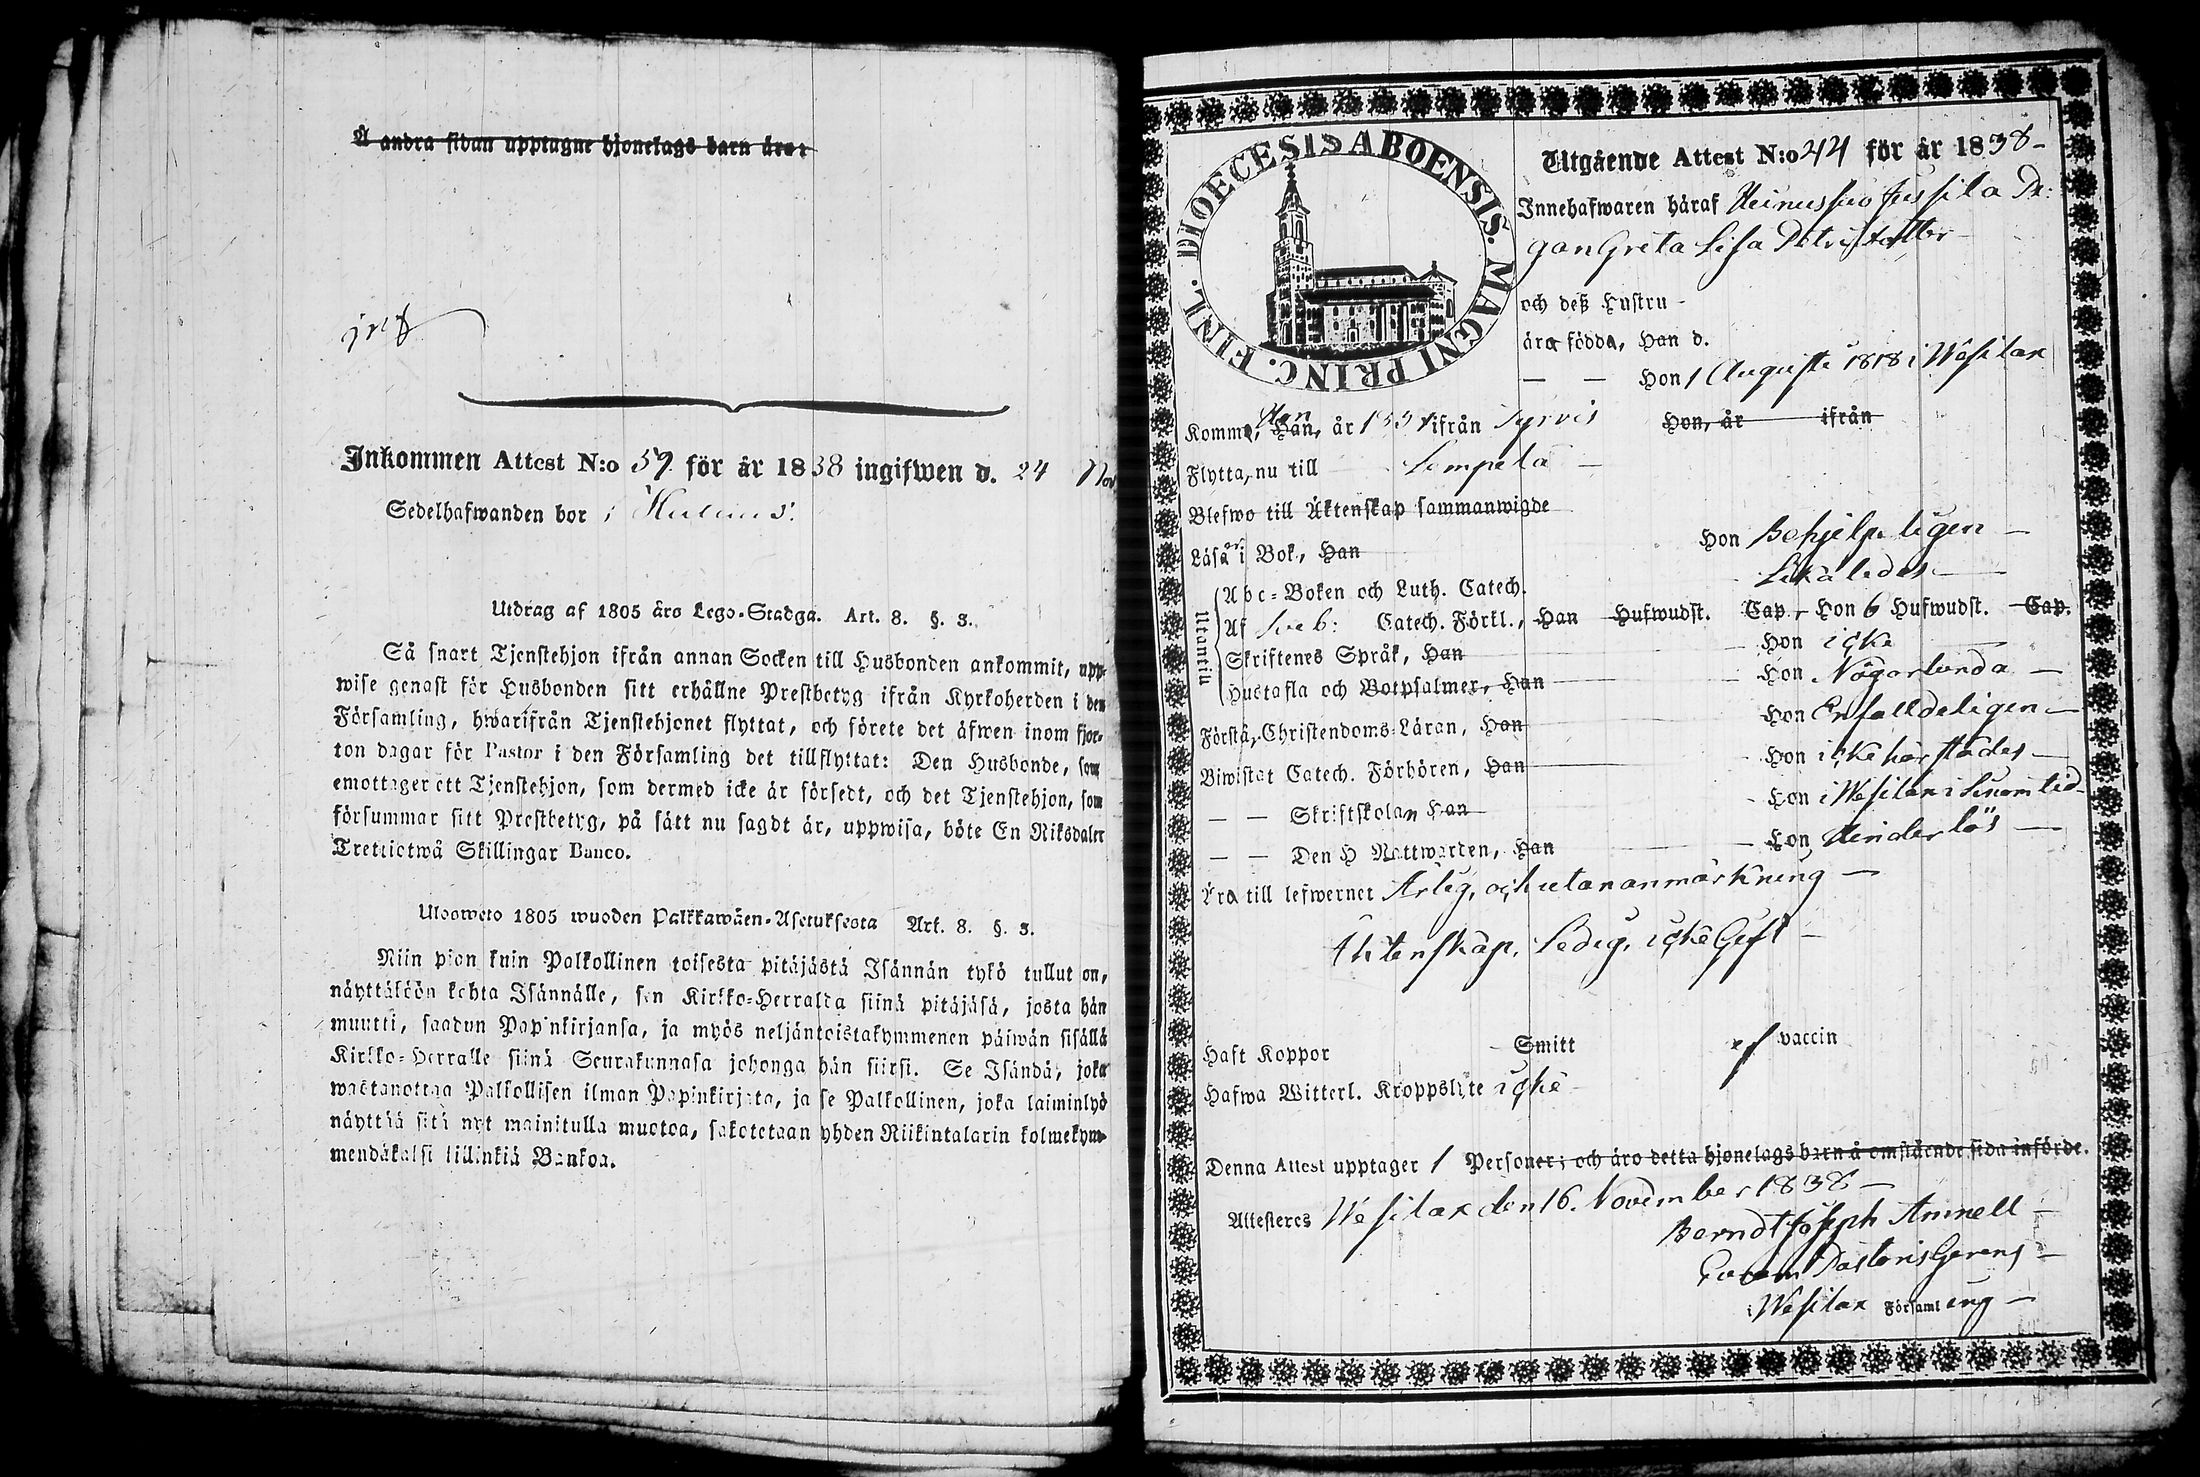 Å andra sidan upptagne hjonelags barn äro:
Inkommen Attest N:o 59 för år 1838 ingifwen d. 24 Nov
Sedelhafwanden bor i
Utdrag af 1805 års Lego-Stadga. Art. 8. §. 3.
Så snart Tjenstehjon ifrån annan Socken till Husbonden ankommit, upp-
wise genast för Husbonden sitt erhållne Prestbetyg ifrån Kyrkoherden i den
Församling, hwarifrån Tjenstehjonet flyttat, och förete det äfwen inom fjor-
ton dagar för Pastor i den Församling det tillflyttat: Den Husbonde, som
emottager ett Tjenstehjon, som dermed icke är försedt, och det Tjenstehjon, som
försummar sitt Prestbetyg, på sätt nu sagdt är, uppwisa, böte En Riksdaler
Trettiotwå Skillingar Banco.
Ulosweto 1805 wuoden Palkkawäen-Asetuksesta Art. 8. §. 3.
Niin pian kuin Palkollinen toisesta pitäjästä Isännän tykö tullut on,
näyttäköön kohta Isännälle, sen Kirkko-Herralda siinä pitäjäsä, josta hän
muutti, saadun Papinkirjansa, ja myös neljäntoistakymmenen päiwän sisällä
Kirkko-Herralle siinä Seurakunnasa johonga hän siirsi. Se Isändä, joka
wastanottaa Palkollisen ilman Papinkirjata, ja se Palkollinen, joka laiminlyö
näyttää sitä nyt mainitulla muotoa, sakotetaan yhden Riikintalarin kolmekym-
mendäkaksi killinkiä Bankoa.
DIOECESIS ABOENSIS. MAGNI PRINC. FINL.
Utgående Attest N:o 44 för år 1838
Innehafwaren häraf Heinusuo Jussila Pi-
gan Greta Lisa Petristotter
och deß Hustru
ära födda, Han d.
Hon 1 Augusti 1818 i Wesilax
Komma, Hon Han, år 1837 ifrån Tyrvis Hon, år ifrån
Flytta, nu till Lempela
Blefwo till Äktenskap sammanwigde
Läsa i Bok, Han Hon Behjelpeligen
Utantill
Abc-Boken och Luth. Catech. Likaledes
Af Sveb: Catech. Förkl., Han Hufwudst. Cap. Hon 6 Hufwudst. Cap.
Skriftenes Språk, Han Hon icke
Hustafla och Botpsalmer, Han Hon Någorlunda
Förstå, Christendoms-Läran, Han Hon Enfalldeligen
Biwistat Catech. Förhören, Han Hon icke härstädes
— — Skriftskolan Han Hon i Wesilax i sinom tid
— — Den H Nattwarden, Han Hon Hinderlös
Ära till lefwernet Ärlig, och utan anmärkning
Äktenskap, Ledig, icke Gift
Haft Koppor Smitt af vaccin
Hafwa Witterl. Kroppslyte icke
Denna Attest upptager 1 Personer; och äro detta hjonelags barn å omstående sida införde.
Attesteres Wesilax den 16. November 1838
Berndt Joseph Amnell
Pastoris Gerens
i Wesilax Församl ing